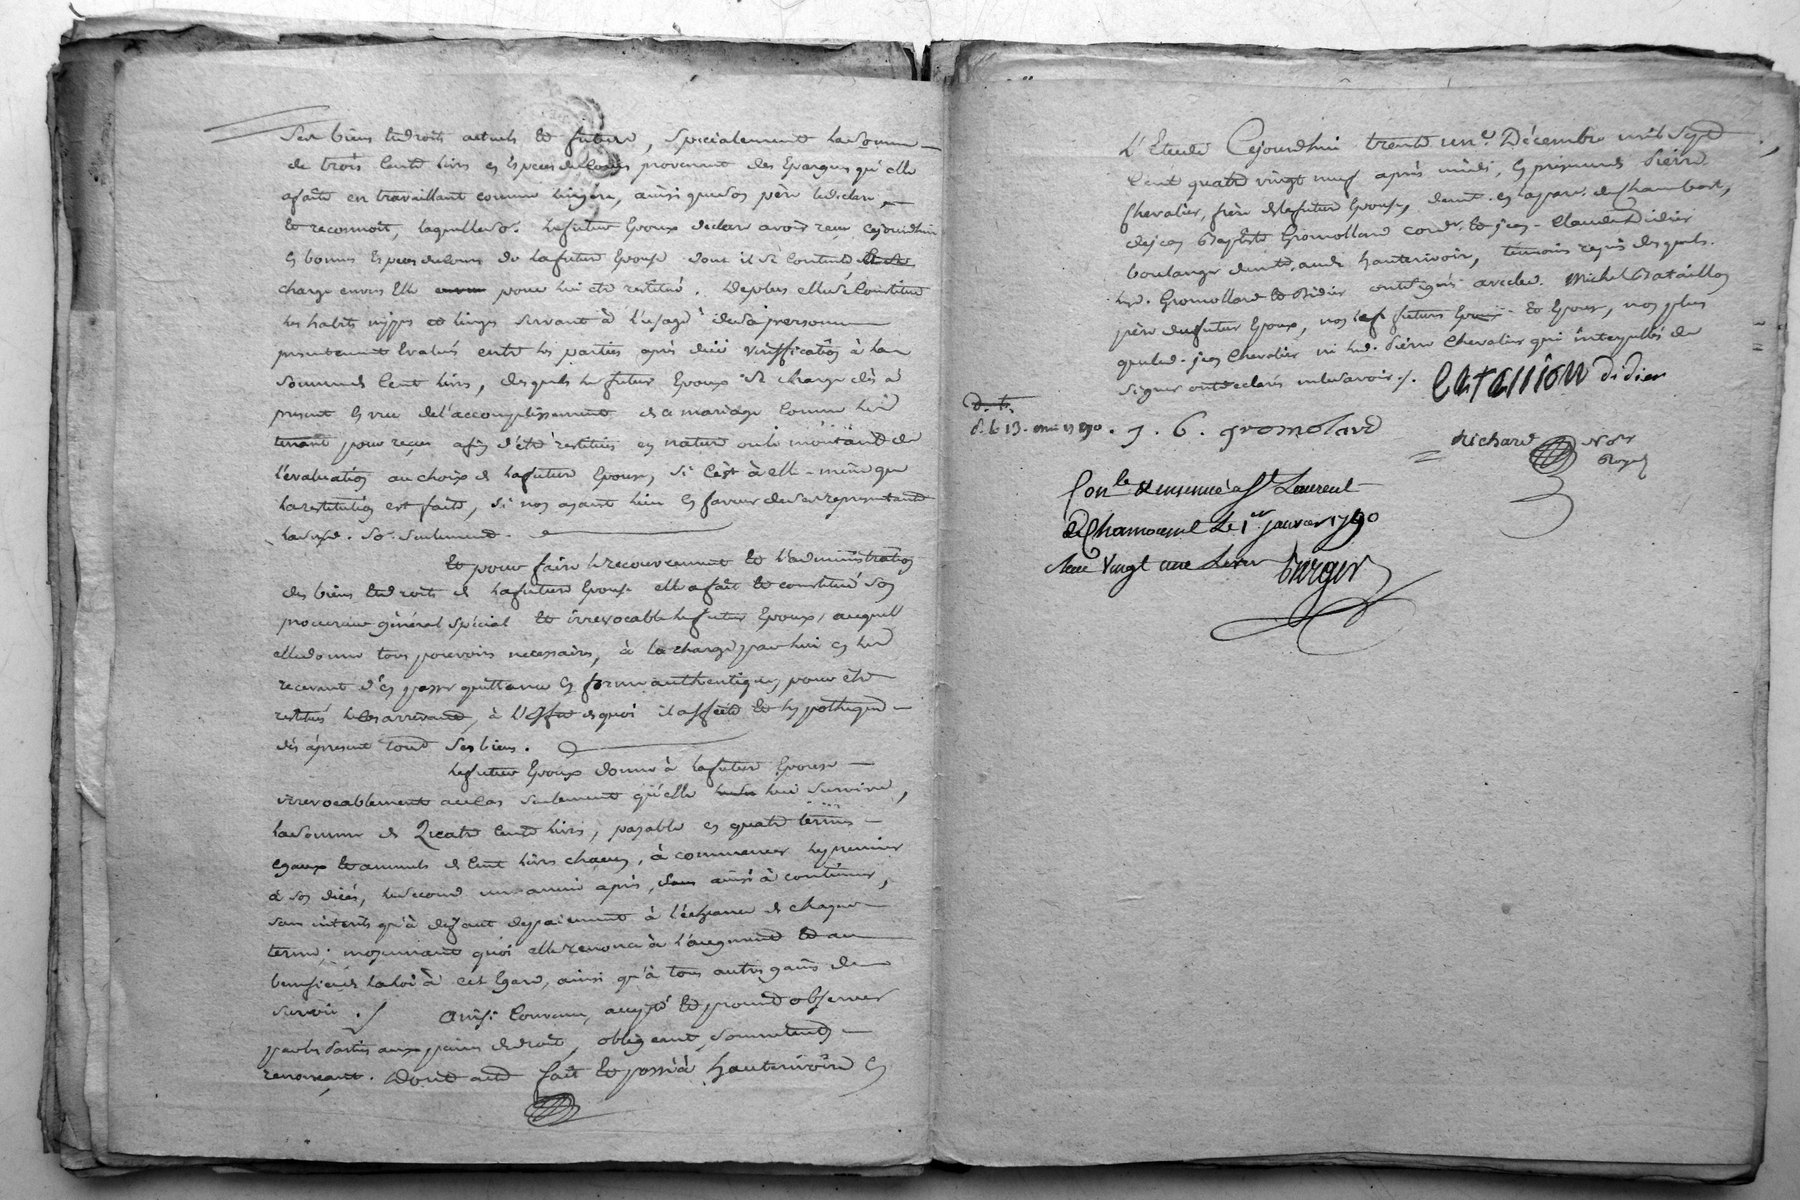 ses biens et droits actuels et futurs, spécialement la somme
de trois cents livres en espèces de cours provenant des Epargnes qu'elle
a faite en travaillant comme lingère, ainsi que son père le déclare
et reconnoit, laquelle so. le futur Epoux déclare avoir reçu cejourdhui
en bonnes Espèces de cours de la future Epouse dont il se contente
charge envers Elle pour lui etre restitué. De plus elle se Constitue
les habits nippes et linges servant à l'usage de sa personne
présentement Evalués entre les parties après due vériffication à la
somme de Cent livres, desquels le futur Epoux se charge dès à
présent en vue de l'accomplissement de ce mariage Comme les
tenant pour reçus afin d'être restitués en nature ou le montant de
l'évaluation au choix de la future Epouse, si c'est à elle-même que
la restitution est faite, si non ayant lieu en faveur de ses représentants
lasusd. so. seulement.
Et pour faire le recouvrement et l'administration
des biens et droits de la future Epouse elle a fait et constitué son
procureur général spécial et irrévocable le futur Epoux, auquel
elle donne tous pouvoirs nécessaires, à la charge par lui en les
recevant d'en passer quittance en forme authentique, pour être
restitués le cas arrivant, à l'Effet de quoi il affecte et hypothèque
dès àprésent tous ses biens.
Le futur Epoux donne à la future Epouse
irrévocablement au cas seulement qu'elle lui survive,
la somme de Quatre Cents livres, payable en quatre termes
egaux et annuels de Cent livres chacun, à commencer le premier
à son décès, le second une année après, ainsi à continuer,
sans intérêts qu'à deffaut de paiement à l'échéance de chaque
terme; moyennant quoi elle renonce à l'augment et au
bénéfice de la loi à cet Egard, ainsi qu'à tous autres gains de
survie. Ainsi Convenu, accepté et promit observer
par les Parties aux peines de droit, obligeant, soumettant,
renonçant. Dont acte fait et passé à Hauterivoire en
L'Etude Cejourdhui trente un.e Décembre mil sept
Cent quatre vingt neuf après midi, en présence de Pierre
Chevalier, frère de la future Epouse, demt. en la parr. de Chambost,
de jean Baptiste Gromollard cord.r et jean-Claude Didier
boulanger demt. aud. hauterivoire, témoins requis desquels
lesd. Gromollard et Didier ont signés avec led. Michel Bataillon
père du futur Epoux, non les futurs et Epoux, non plus
que led. jean Chevalier ni led. Pierre Chevalier qui interpellés de
signer ont déclarés ne le savoir./.
Bataillon didier
J. B. gromolard
Richard Nore
Royal
Con.le et insinué a St Laurent
de Chamousset Le 1er janvier 1790
Reçu Vingt une Livre Burger